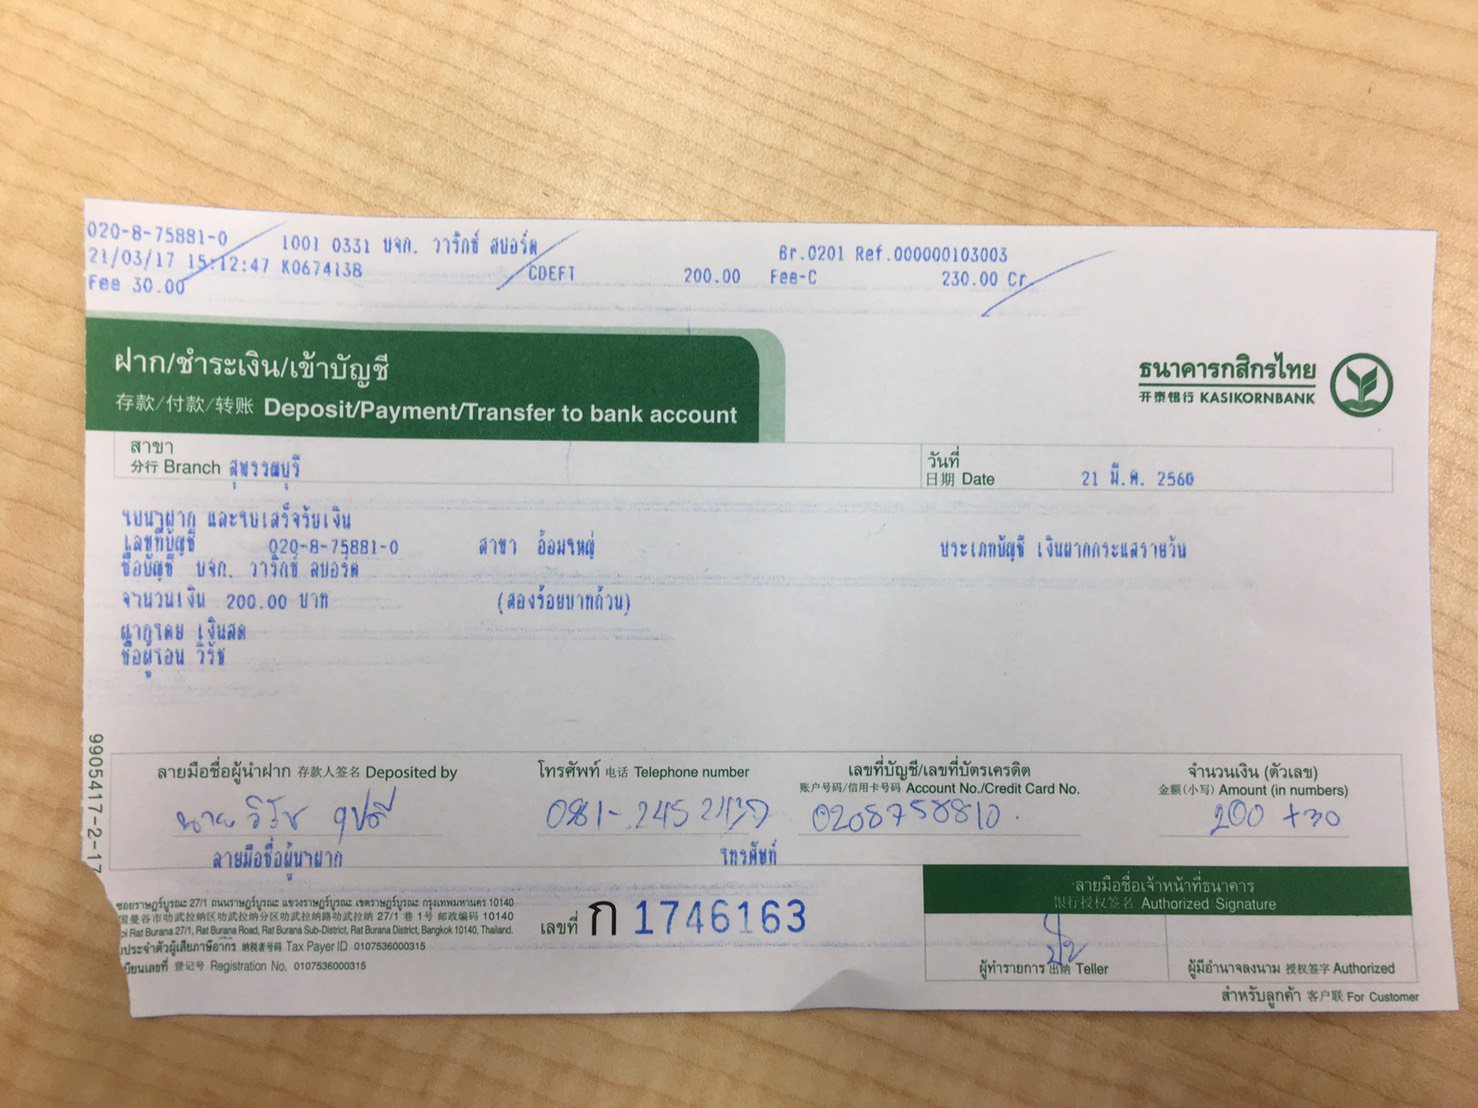 020-8-75881-0 1001 0331 บจก. วาริกซ์ สปอร์ต Br.0201 Ref.000000103003
21/03/17 15:12:47 K0674138 CDEFT 200.00 Fee-C 230.00 Cr
Fee 30.00
ฝาก/ชำระเงิน/เข้าบัญชี
存款/付款/转账 Deposit/Payment/Transfer to bank account
ธนาคารกสิกรไทย
开泰银行 KASIKORNBANK
สาขา
分行 Branch สุพรรณบุรี
วันที่
日期 Date 21 มี.ค. 2560
ใบนำฝาก และใบเสร็จรับเงิน
เลขที่บัญชี 020-8-75881-0 สาขา อ้อมใหญ่ ประเภทบัญชี เงินฝากกระแสรายวัน
ชื่อบัญชี บจก. วาริกซ์ สปอร์ต
จำนวนเงิน 200.00 บาท (สองร้อยบาทถ้วน)
ฝากโดย เงินสด
ชื่อผู้โอน วิรัช
9905417-2-17
ลายมือชื่อผู้นำฝาก 存款人签名 Deposited by
โทรศัพท์ 电话 Telephone number
เลขที่บัญชี/เลขที่บัตรเครดิต
账户号码/信用卡号码 Account No./Credit Card No.
จำนวนเงิน (ตัวเลข)
金额(小写) Amount (in numbers)
นาย วิรัช 081-245 0208758810. 200 +30
ลายมือชื่อผู้นำฝาก โทรศัพท์
ซอยราษฎร์บูรณะ 27/1 ถนนราษฎร์บูรณะ แขวงราษฎร์บูรณะ เขตราษฎร์บูรณะ กรุงเทพมหานคร 10140
国曼谷市叻武拉纳区叻武拉纳分区叻武拉纳路叻武拉纳 27/1 巷 1号 邮政编码 10140
oi Rat Burana 27/1, Rat Burana Road, Rat Burana Sub-District, Rat Burana District, Bangkok 10140, Thailand.
ประจำตัวผู้เสียภาษีอากร 纳税者号码 Tax Payer ID 0107536000315
เบียนเลขที่ 登记号 Registration No. 0107536000315
เลขที่ ก 1746163
ลายมือชื่อเจ้าหน้าที่ธนาคาร
银行授权签名 Authorized Signature
ผู้ทำรายการ 出纳 Teller
ผู้มีอำนาจลงนาม 授权签字 Authorized
สำหรับลูกค้า 客户联 For Customer